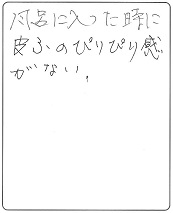 風呂に入った時に
皮ふのぴりぴり感
がない。